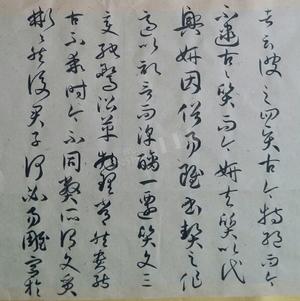 者云彼之四賢古今特絕而今
不逮古古質而今妍夫質以代
興妍因俗易雖書契之作
適以記言而淳醨一遷質文三
變馳騖沿革物理常然貴能
古不乖時今不同弊所謂文質
彬彬然後君子何必易雕宮於